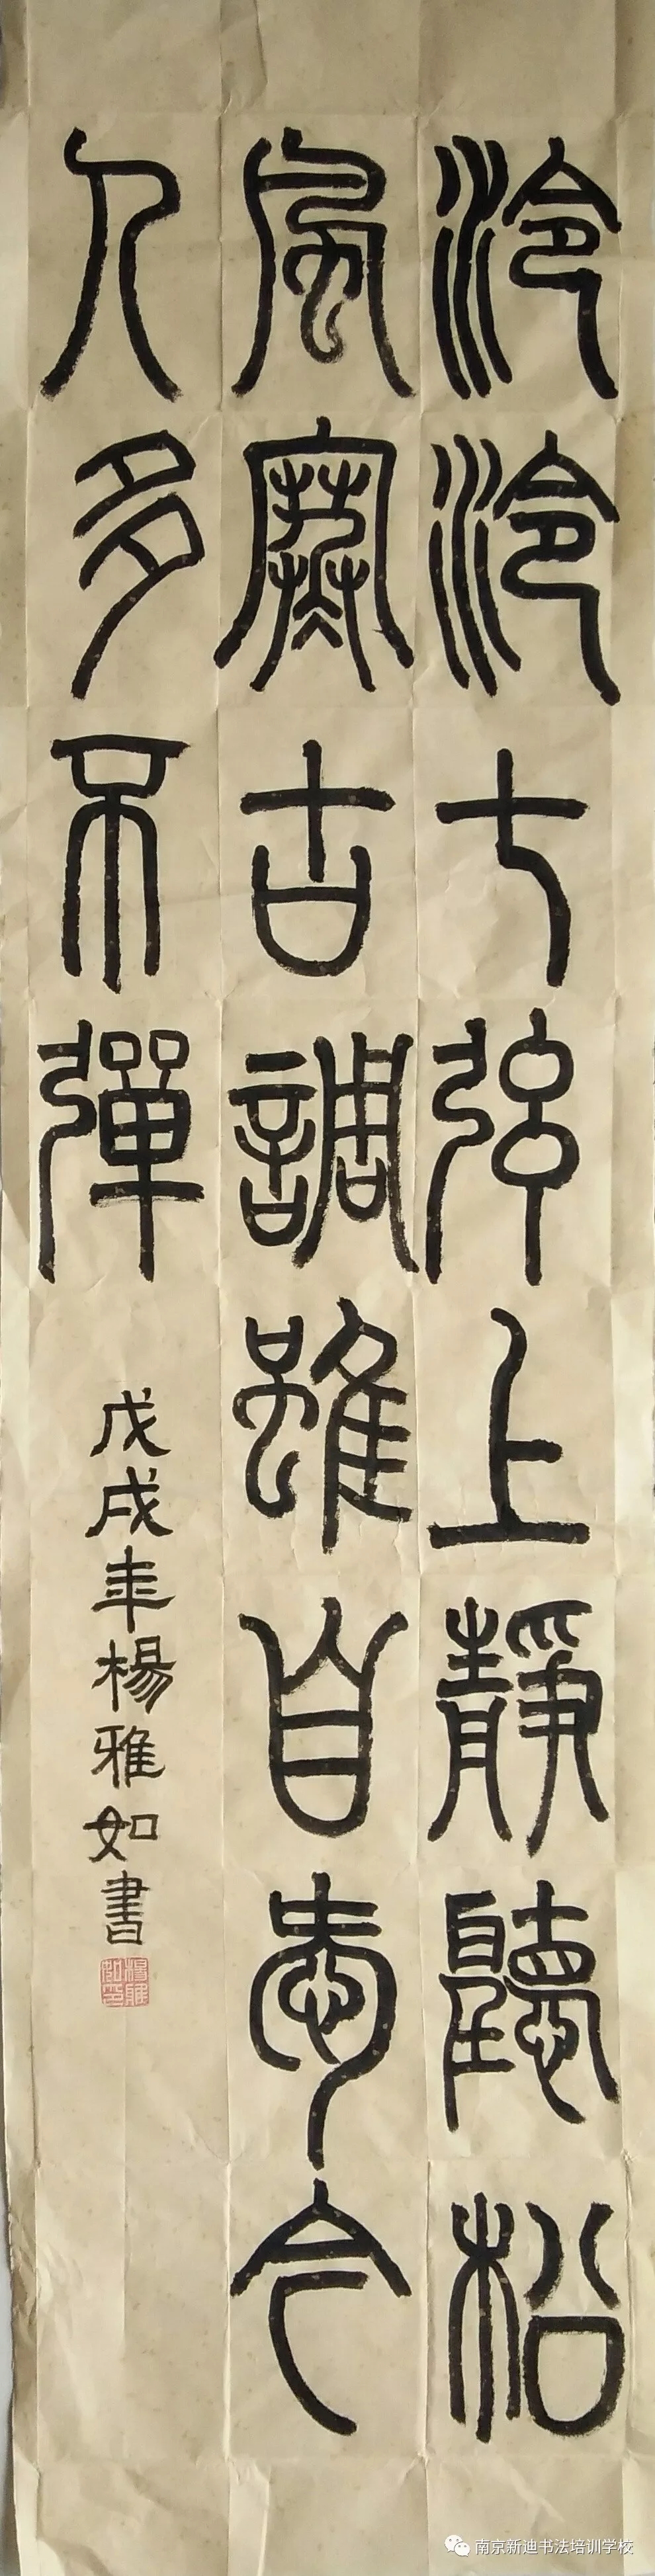 泠泠七弦上靜聽松
風寒古調雖自愛今
人多不彈
戊戌年楊雅如書
楊雅如印
南京新迪书法培训学校